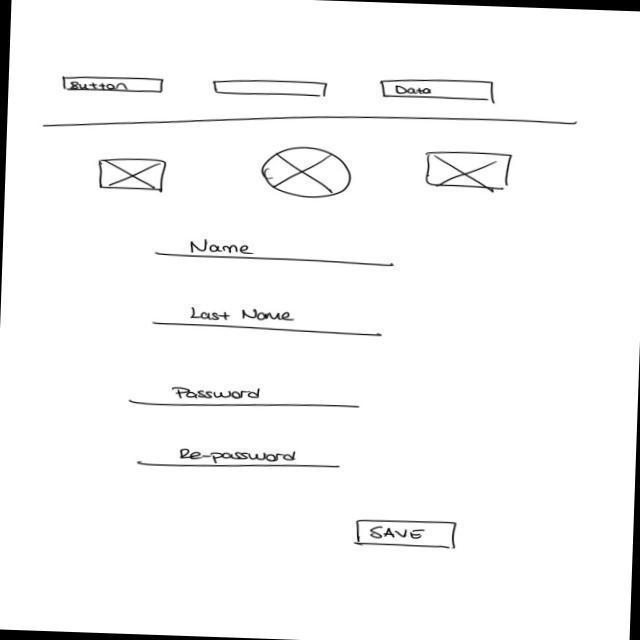 Button
Data
Name
Last Name
Password
Re-password
SAVE